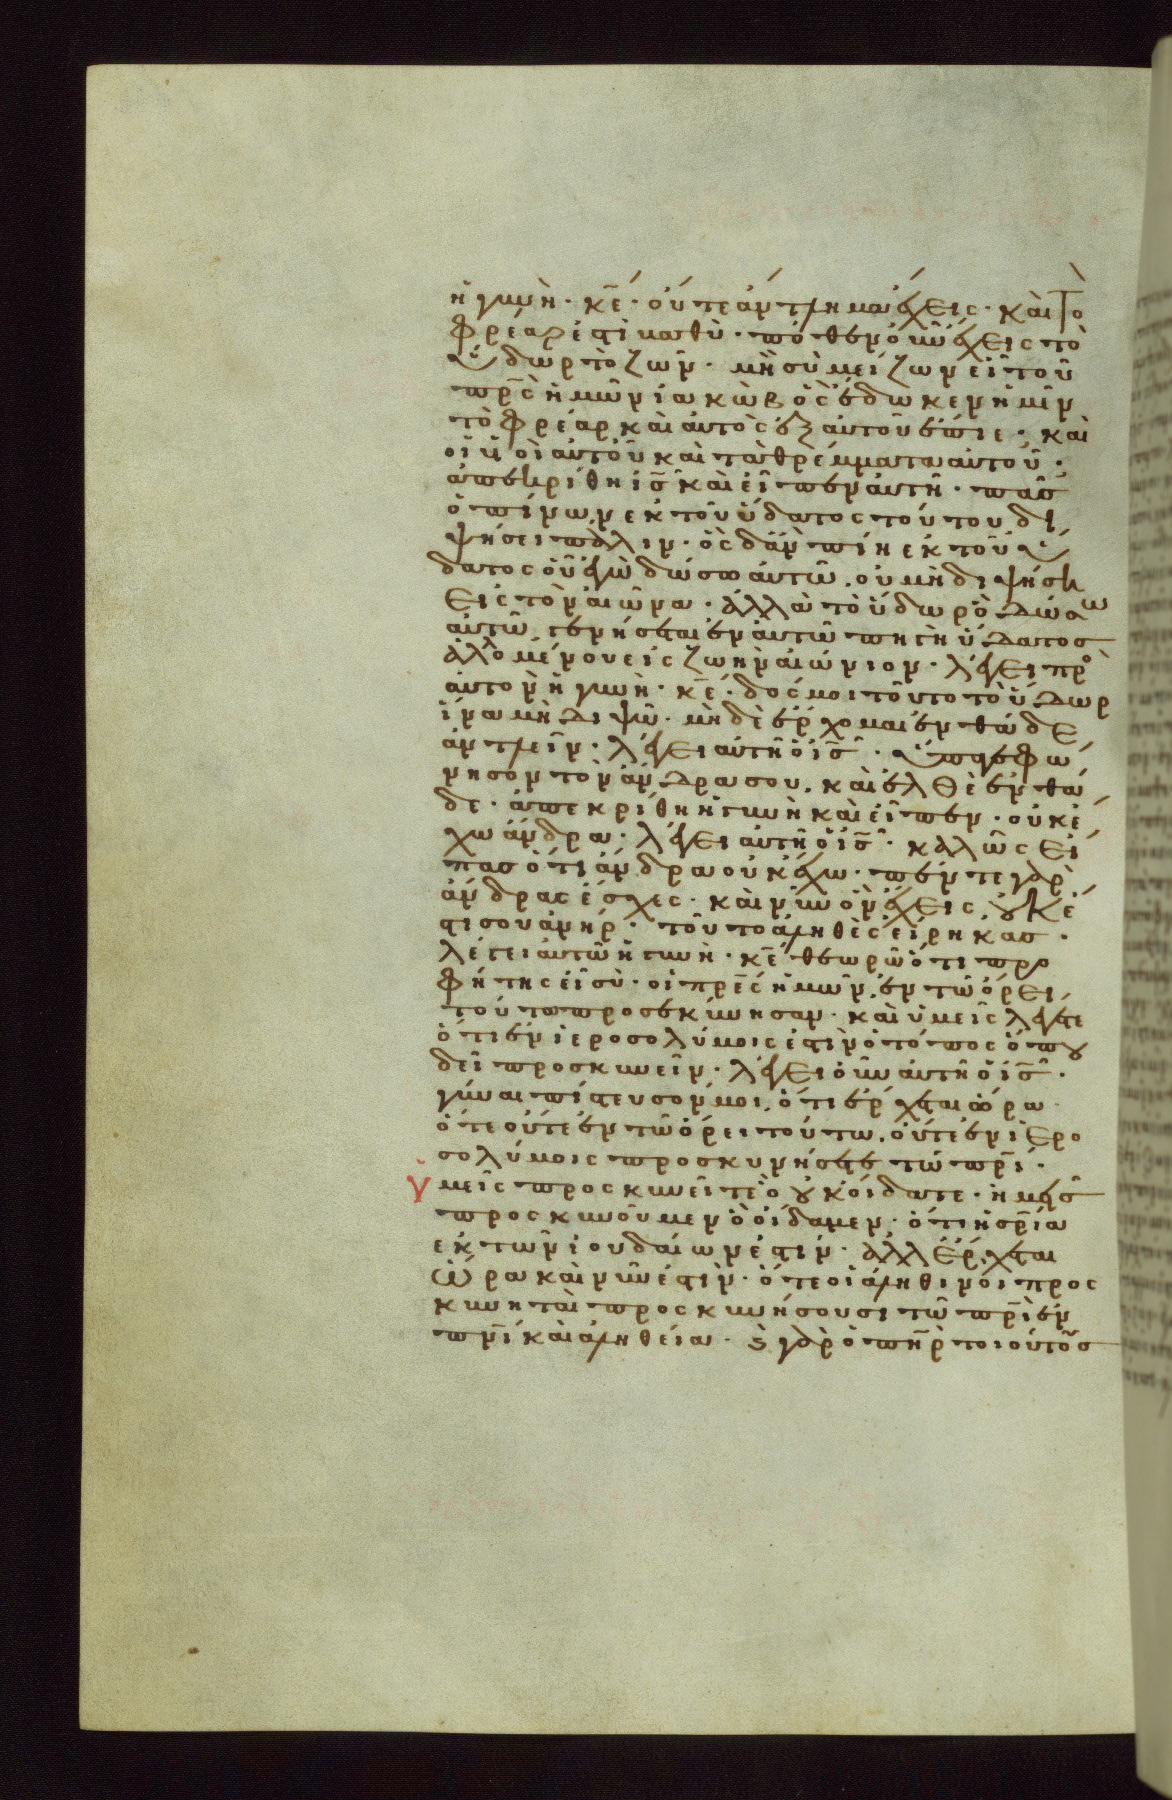 ἡ γυνὴ· κ̅ε̅· οὔτε ἄντλημα ἔχεις· καὶ τὸ
φρέαρ ἐστὶ βαθύ· πόθεν οὖν ἔχεις τὸ
ὕδωρ τὸ ζῶν· μὴ σὺ μείζων εἶ τοῦ
π̅ρ̅ς̅ ἡμῶν ἰακὼβ ὃς ἔδωκεν ἡμῖν
τὸ φρέαρ καὶ αὐτὸς ἐξ αὐτοῦ ἔπιε· καὶ
οἱ υἱοὶ αὐτοῦ καὶ τὰ θρέμματα αὐτοῦ·
ἀπεκρίθη ι̅ς̅ καὶ εἶπεν αὐτῆ· πᾶς
ὁ πίνων ἐκ τοῦ ὕδατος τούτου δι
ψήσει πάλιν· ὃς δ' ἂν πίη ἐκ τοῦ ὕ
δατος οὗ ἐγὼ δώσω αὐτῶ. οὐ μὴ διψήση
εἰς τὸν αἰῶνα· ἀλλὰ τὸ ὕδωρ ὃ δώσω
αὐτῶ γενήσεται ἐν αὐτῶ πηγὴ ὕδατος
ἁλλομένου εἰς ζωὴν αἰώνιον· λέγει πρὸ
αὐτὸν ἡ γυνὴ· κ̅ε̅· δός μοι τοῦτο τὸ ὕδωρ
ἵνα μὴ διψῶ· μηδὲ ἔρχομαι ἐνθάδε
ἀντλεῖν· λέγει αὐτῆ ὁ ι̅ς̅· ὕπαγε φώ
νησον τὸν ἄνδρα σου. καὶ ἐλθὲ ἐνθά
δε· ἀπεκρίθη ἡ γυνὴ καὶ εἶπεν· οὐκ ἔ
χω ἄνδρα· λέγει αὐτῆ ὁ ι̅ς̅· καλῶς εἶ
πας ὅτι ἄνδρα οὐκ ἔχω· πέντε γὰρ
ἄνδρας ἔσχες· καὶ νῦν ὃν ἔχεις οὐκ ἔ
στι σου ἀνήρ· τοῦτο ἀληθὲς εἴρηκας·
λέγει αὐτῶ ἡ γυνὴ· κ̅ε̅ θεωρῶ ὅτι προ
φήτης εἶ σύ· οἱ π̅ρ̅ε̅ς̅ ἡμῶν ἐν τῶ ὄρει
τούτω προσεκύνησαν· καὶ ὑμεῖς λέγετε
ὅτι ἐν ἱεροσολύμοις ἐστὶν ὁ τόπος ὅπου
δεῖ προσκυνεῖν· λέγει οὖν αὐτῆ ὁ ι̅ς̅·
γύναι πίστευσόν μοι. ὅτι ἔρχεται ὥρα
ὅτε οὔτε ἐν τῶ ὄρει τούτω. οὔτε ἐν ἱερο
σολύμοις προσκυνήσετε τῶ π̅ρ̅ι̅·
ὑμεῖς προσκυνεῖτε ὃ οὐκ οἴδατε· ἡμεῖς
προσκυνοῦμεν ὃ οἴδαμεν· ὅτι ἡ σ̅ρ̅ία
ἐκ τῶν ἰουδαίων ἐστίν· ἀλλ' ἔρχεται
ὥρα καὶ νῦν ἐστὶν· ὅτε οἱ ἀληθινοὶ προς
κυνηταὶ προσκυνήσουσι τῶ π̅ρ̅ι̅ ἐν
π̅ν̅ι̅ καὶ ἀληθεία· ϗ γὰρ ὁ π̅η̅ρ̅ τοιούτους